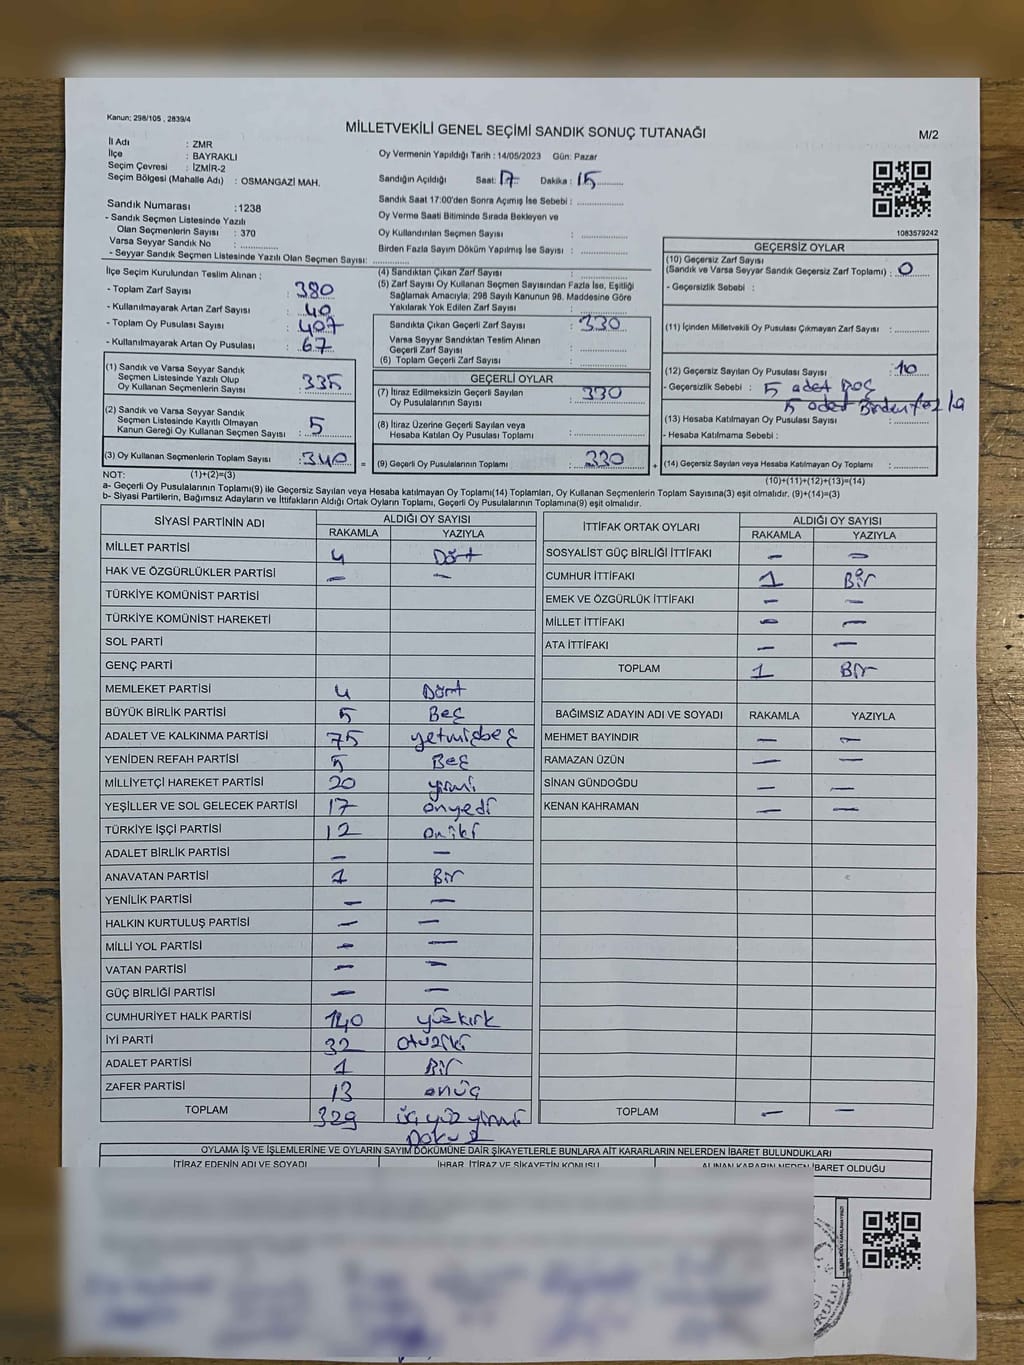 Kanun; 298/105 , 2839/4
MİLLETVEKİLİ GENEL SEÇİMİ SANDIK SONUÇ TUTANAĞI
M/2
İl Adı : ZMR
İlçe : BAYRAKLI
Seçim Çevresi : İZMİR-2
Seçim Bölgesi (Mahalle Adı) : OSMANGAZİ MAH.
Oy Vermenin Yapıldığı Tarih : 14/05/2023 Gün: Pazar
Sandığın Açıldığı Saat: 17 Dakika : 15
Sandık Saat 17:00'den Sonra Açımış İse Sebebi :
Oy Verme Saati Bitiminde Sırada Bekleyen ve
Oy Kullandırılan Seçmen Sayısı :
Birden Fazla Sayım Döküm Yapılmış İse Sayısı :
Sandık Numarası :1238
- Sandık Seçmen Listesinde Yazılı
Olan Seçmenlerin Sayısı : 370
Varsa Seyyar Sandık No :
- Seyyar Sandık Seçmen Listesinde Yazılı Olan Seçmen Sayısı:
1083579242
İlçe Seçim Kurulundan Teslim Alınan ;
- Toplam Zarf Sayısı : 380
- Kullanılmayarak Artan Zarf Sayısı : 40
- Toplam Oy Pusulası Sayısı : 407
- Kullanılmayarak Artan Oy Pusulası : 67
(1) Sandık ve Varsa Seyyar Sandık
Seçmen Listesinde Yazılı Olup
Oy Kullanan Seçmenlerin Sayısı : 335
(2) Sandık ve Varsa Seyyar Sandık
Seçmen Listesinde Kayıtlı Olmayan
Kanun Gereği Oy Kullanan Seçmen Sayısı : 5
(3) Oy Kullanan Seçmenlerin Toplam Sayısı : 340
(4) Sandıktan Çıkan Zarf Sayısı :
(5) Zarf Sayısı Oy Kullanan Seçmen Sayısından Fazla İse, Eşitliği
Sağlamak Amacıyla; 298 Sayılı Kanunun 98. Maddesine Göre
Yakılarak Yok Edilen Zarf Sayısı :
Sandıkta Çıkan Geçerli Zarf Sayısı : 330
Varsa Seyyar Sandıktan Teslim Alınan
Geçerli Zarf Sayısı :
(6) Toplam Geçerli Zarf Sayısı :
GEÇERLİ OYLAR
(7) İtiraz Edilmeksizin Geçerli Sayılan
Oy Pusulalarının Sayısı : 330
(8) İtiraz Üzerine Geçerli Sayılan veya
Hesaba Katılan Oy Pusulası Toplamı :
= (9) Geçerli Oy Pusulalarının Toplamı : 330
GEÇERSİZ OYLAR
(10) Geçersiz Zarf Sayısı
(Sandık ve Varsa Seyyar Sandık Geçersiz Zarf Toplamı) : 0
- Geçersizlik Sebebi :
(11) İçinden Milletvekili Oy Pusulası Çıkmayan Zarf Sayısı :
(12) Geçersiz Sayılan Oy Pusulası Sayısı : 10
- Geçersizlik Sebebi : 5 adet Boş
5 adet Birden fazla
(13) Hesaba Katılmayan Oy Pusulası Sayısı :
- Hesaba Katılmama Sebebi :
+ (14) Geçersiz Sayılan veya Hesaba Katılmayan Oy Toplamı :
NOT: (1)+(2)=(3)
(10)+(11)+(12)+(13)=(14)
a- Geçerli Oy Pusulalarının Toplamı(9) ile Geçersiz Sayılan veya Hesaba katılmayan Oy Toplamı(14) Toplamları, Oy Kullanan Seçmenlerin Toplam Sayısına(3) eşit olmalıdır. (9)+(14)=(3)
b- Siyasi Partilerin, Bağımsız Adayların ve İttifakların Aldığı Ortak Oyların Toplamı, Geçerli Oy Pusulalarının Toplamına(9) eşit olmalıdır.
SİYASİ PARTİNİN ADI ALDIĞI OY SAYISI
RAKAMLA YAZIYLA
MİLLET PARTİSİ 4 Dört
HAK VE ÖZGÜRLÜKLER PARTİSİ — —
TÜRKİYE KOMÜNİST PARTİSİ
TÜRKİYE KOMÜNİST HAREKETİ
SOL PARTİ
GENÇ PARTİ
MEMLEKET PARTİSİ 4 Dört
BÜYÜK BİRLİK PARTİSİ 5 Beş
ADALET VE KALKINMA PARTİSİ 75 yetmişbeş
YENİDEN REFAH PARTİSİ 5 Beş
MİLLİYETÇİ HAREKET PARTİSİ 20 yirmi
YEŞİLLER VE SOL GELECEK PARTİSİ 17 onyedi
TÜRKİYE İŞÇİ PARTİSİ 12 oniki
ADALET BİRLİK PARTİSİ — —
ANAVATAN PARTİSİ 1 Bir
YENİLİK PARTİSİ — —
HALKIN KURTULUŞ PARTİSİ — —
MİLLİ YOL PARTİSİ — —
VATAN PARTİSİ — —
GÜÇ BİRLİĞİ PARTİSİ — —
CUMHURİYET HALK PARTİSİ 140 yüzkırk
İYİ PARTİ 32 otuziki
ADALET PARTİSİ 1 Bir
ZAFER PARTİSİ 13 onüç
TOPLAM 329 üç yüz yirmi
Dokuz
İTTİFAK ORTAK OYLARI ALDIĞI OY SAYISI
RAKAMLA YAZIYLA
SOSYALİST GÜÇ BİRLİĞİ İTTİFAKI — —
CUMHUR İTTİFAKI 1 Bir
EMEK VE ÖZGÜRLÜK İTTİFAKI — —
MİLLET İTTİFAKI — —
ATA İTTİFAKI — —
TOPLAM 1 Bir
BAĞIMSIZ ADAYIN ADI VE SOYADI RAKAMLA YAZIYLA
MEHMET BAYINDIR — —
RAMAZAN ÜZÜN — —
SİNAN GÜNDOĞDU — —
KENAN KAHRAMAN — —
TOPLAM — —
OYLAMA İŞ VE İŞLEMLERİNE VE OYLARIN SAYIM DÖKÜMÜNE DAİR ŞİKAYETLERLE BUNLARA AİT KARARLARIN NELERDEN İBARET BULUNDUKLARI
İTİRAZ EDENİN ADI VE SOYADI İHBAR, İTİRAZ VE ŞİKAYETİN KONUSU ALINAN KARARIN NEDEN İBARET OLDUĞU